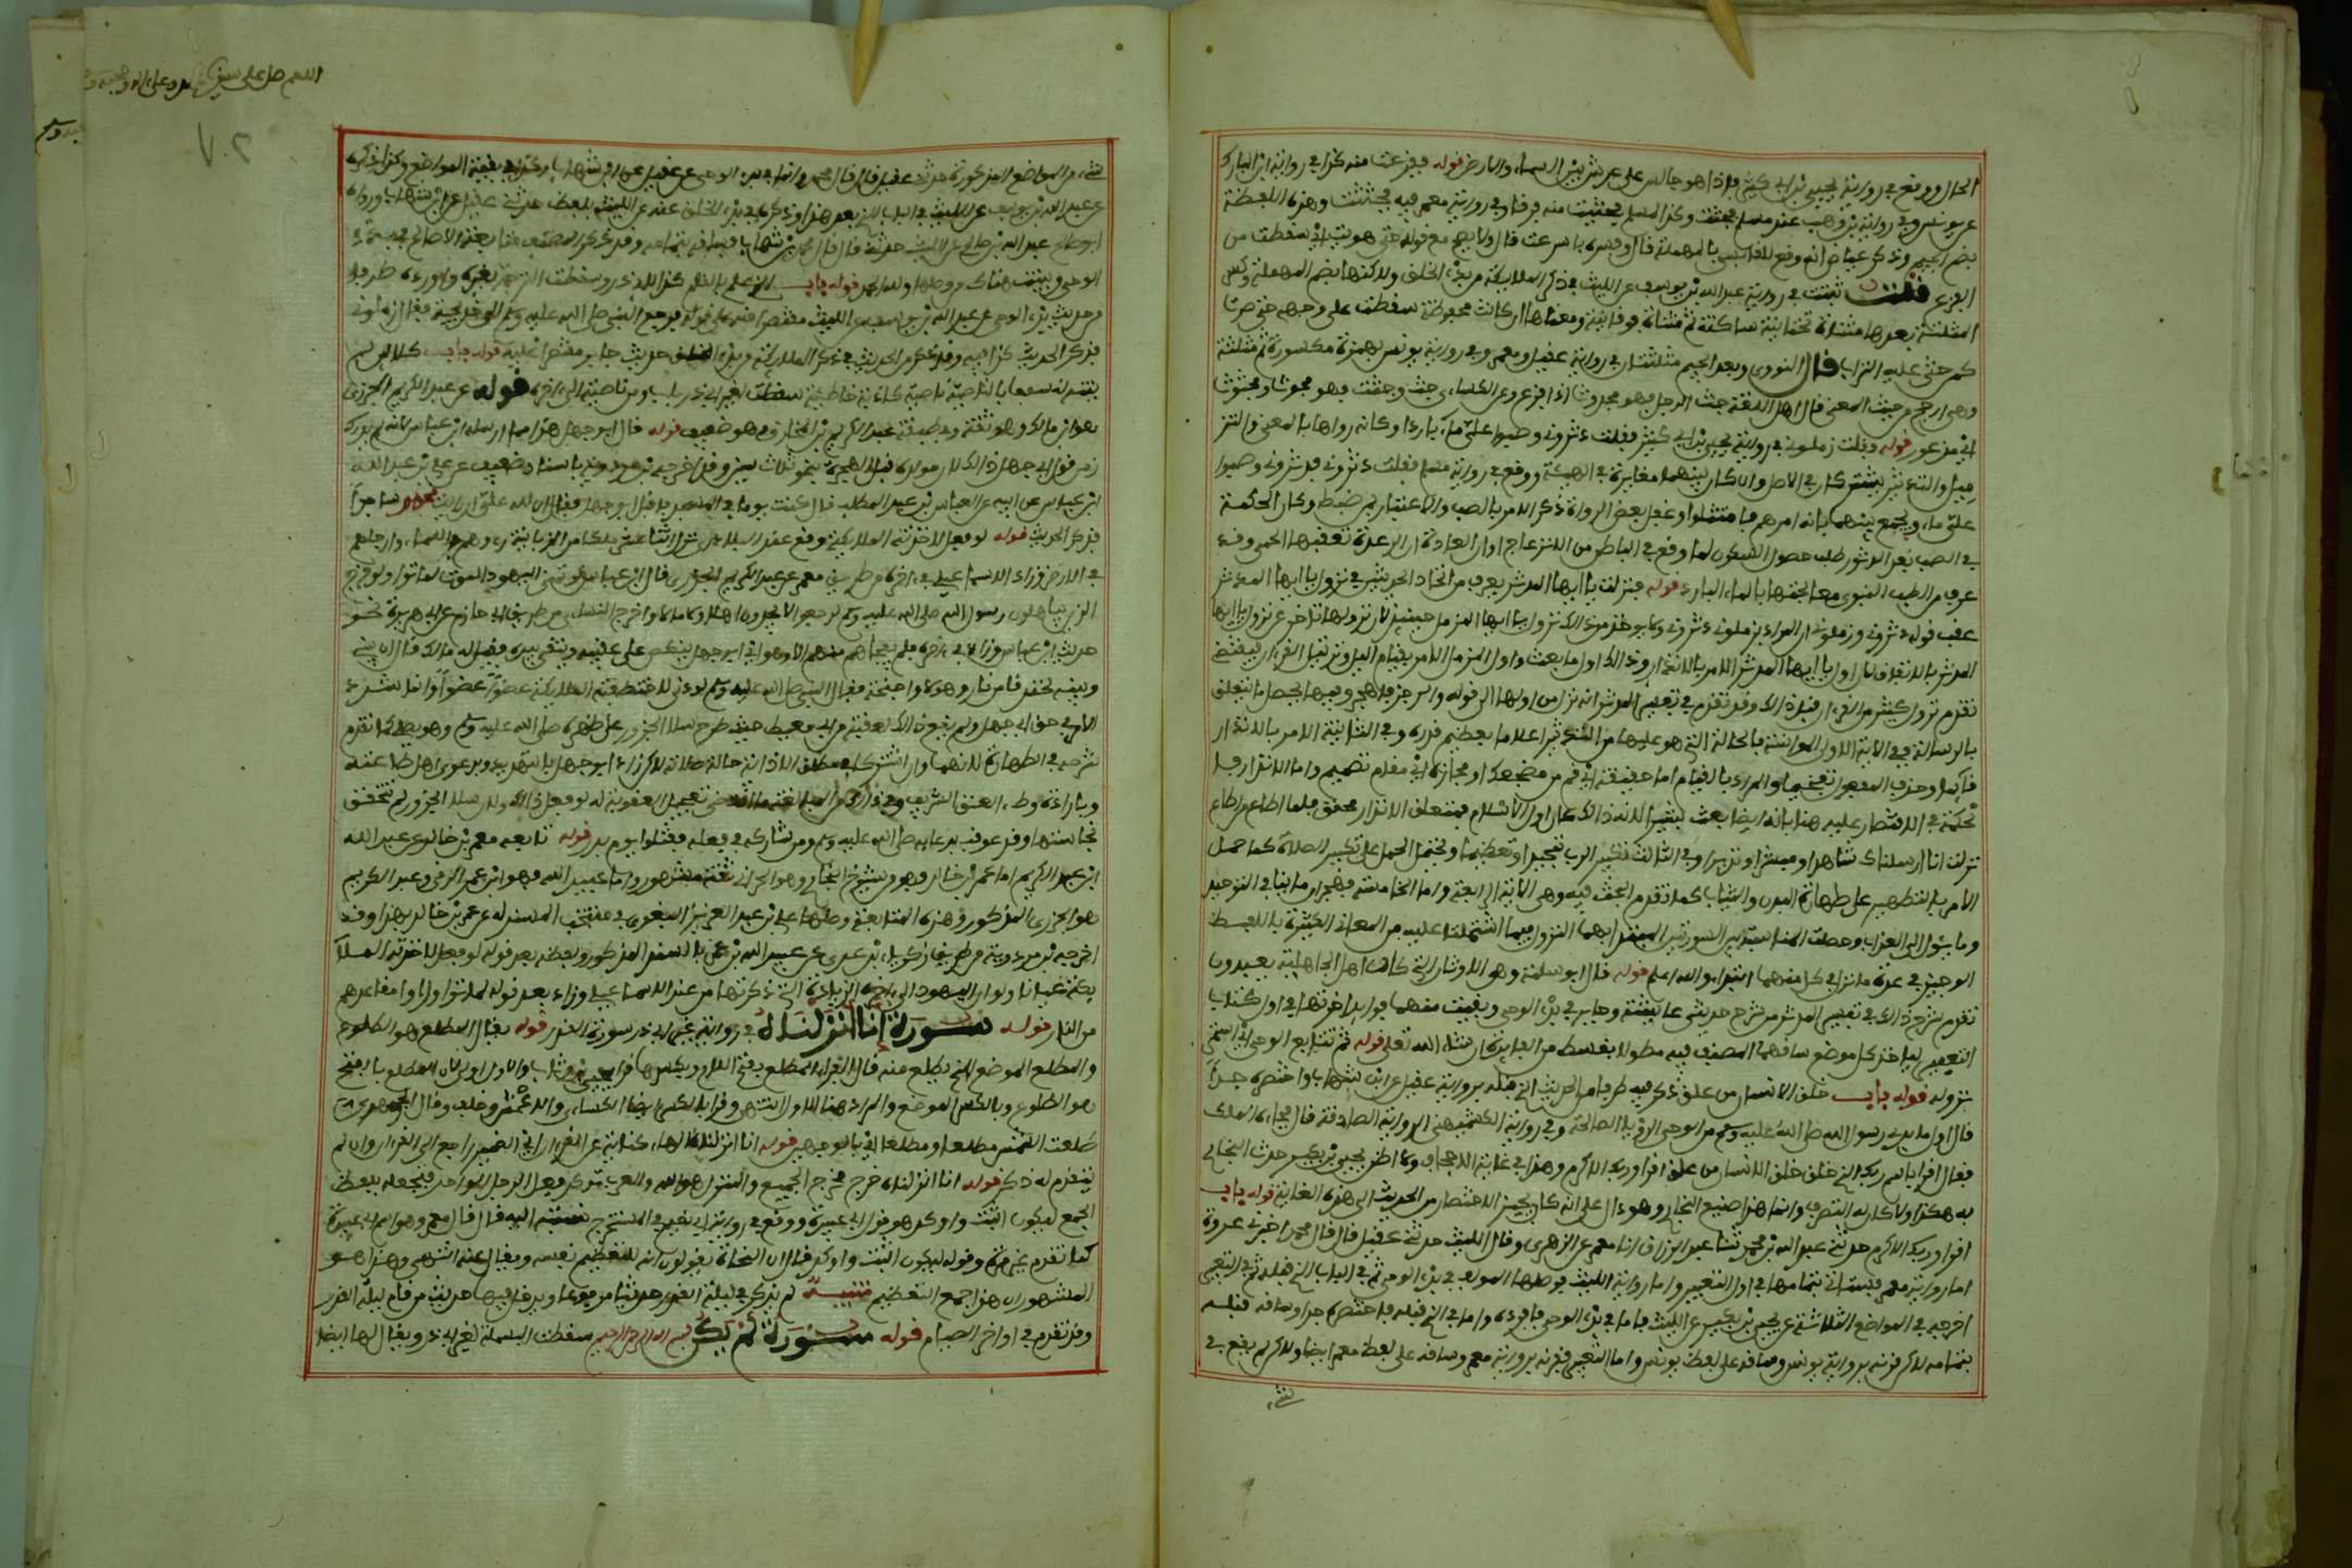 الحال ووقع في رواية يحيى بن أبي كثير فإذا هو جالس على عرش بين السماء والأرض قوله ففزعت منه كذا في رواية ابن المبارك
عن يونس وفي رواية ابن وهب عند مسلم فجثثت وكذا لمسلم فجثثت منه فرقا وفي رواية معمر فيه فجثثت وهذه اللفظة
بضم الجيم وذكر عياض أنه وقع للقابسي بالمهملة قال وفسره بأسرعت قال ولا يصح مع قوله حتى هويت أي سقطت من
الفزع قلت ثبتت في رواية عبد الله بن يوسف عن الليث في ذكر الملائكة من بدء الخلق ولكنها بضم المهملة وكسر
المثلثة بعدها مثناة تحتانية ساكنة ثم مثناة فوقانية ومعناها إن كانت محفوظة سقطت على وجهي حتى صرت
كمن حثي عليه التراب قال النووي وبعد الجيم مثلثتان في رواية عقيل ومعمر وفي رواية يونس بهمزة مكسورة ثم مثلثة
وهي أرجح من حيث المعنى قال أهل اللغة جئث الرجل فهو مجؤوث إذا فزع وعن الكسائي جئث وجثث فهو مجؤوث ومجثوث
أي مذعور قوله وقلت زملوني في رواية يحيى بن أبي كثير فقلت دثروني وصبوا علي ماء باردا وكأنه رواها بالمعنى والتز
ميل والتدثير يشتركان في الأصل وإن كان بينهما مغايرة في الهيئة ووقع في رواية مسلم فقلت دثروني فدثروني وصبوا
علي ماء ويجمع بينهما بأنه أمرهم فامتثلوا وغفل بعض الرواة ذكر الأمر بالصب والاعتبار بمن ضبط وكأن الحكمة
في الصب بعد التدثر طلب حصول السكون لما وقع في الباطن من الانزعاج أو أن العادة أن الرعدة تعقبها الحمى وقد
عرف من الطب النبوي معالجتها بالماء البارد قوله فنزلت يا أيها المدثر يعرف من اتحاد الحديثين في نزول يا أيها المدثر
عقب قوله دثروني وزملوني أن المراد بزملوني دثروني ولا يوخذ من ذلك نزول يا أيها المزمل حينئذ لأن نزولها تأخر عن نزول يا أيها
المدثر بالاتفاق لأن أول يا أيها المدثر الأمر بالانذار وذلك أول ما بعث وأول المزمل الأمر بقيام الليل وترتيل القرءان فيقتضي
تقدم نزول كثير من القرءان قبل ذلك وقد تقدم في تفسير المدثر أنه نزل من أولها إلى قوله والرجز فاهجر وفيها محصل ما يتعلق
بالرسالة ففي الآية الأولى المؤانسة بالحالة التي هو عليها من التدثر إعلاما بعظيم قدره وفي الثانية الأمر بالانذار
قائما وحذف المفعول تفخيما والمراد بالقيام إما حقيقته أي قم من مضجعك أو مجازه أي قم مقام تصميم وأما الانذار فا
لحكمة في الاقتصار عليه هنا فإنه أيضا بعث مبشرا لأن ذلك كان أول الإسلام فمتعلق الانذار محقق فلما أطاع من أطاع
نزلت إنا أرسلناك شاهدا ومبشرا ونذيرا وفي الثالثة تكبير الرب تمجيدا وتعظيما ويحتمل الحمل على تكبير الصلاة كما حمل
الأمر بالتطهير على طهارة البدن والثياب كما تقدم البحث فيه وهي الآية الرابعة وأما الخامسة فهجران ما ينافي التوحيد
وما يئول إلى العذاب وحصلت المناسبة بين السورتين المبتدأ بهما النزول فيما اشتملتا عليه من المعاني الكثيرة باللفظ
الوجيز في عدة ما نزل في كل منهما ابتداء والله أعلم قوله قال أبو سلمة وهي الأوثان التي كان أهل الجاهلية يعبدون
تقدم شرح ذلك في تفسير المدثر من شرح حديثي عائشة وجابر في بدء الوحي وبقيت منهما فوايد أخرتها إلى أول كتاب
التعبير ليأخذ كل موضع ساقهما المصنف فيه مطولا بقسط من الفايدة إن شاء الله تعلى قوله ثم تتابع الوحي أي استمر
نزوله قوله باب خلق الانسان من علق ذكر فيه طرفا من الحديث الذي قبله برواية عقيل عن ابن شهاب واختصره جدا
قال أول ما بدئ رسول الله صلى الله عليه وسلم من الوحي الرؤيا الصالحة وفي رواية الكشميهني الرؤيا الصادقة قال فجاءه الملك
فقال اقرأ باسم ربك الذي خلق خلق الانسان من علق اقرأ وربك الاكرم وهذا في غاية الاجحاف ولا أظن يحيى بن بكير حدث البخاري
به هكذا ولا كان له التصرف وإنما هذا صنيع البخاري وهو دال على أنه كان يجيز الاختصار من الحديث إلى هذه الغاية قوله باب
اقرأ وربك الاكرم حدثني عبد الله بن محمد ثنا عبد الرزاق أنا معمر عن الزهري وقال الليث حدثني عقيل قال قال محمد أخبرني عروة
أما رواية معمر فستأتي بتمامها في أول التعبير وأما رواية الليث فوصلها المولف في بدء الوحي ثم في الباب الذي قبله ثم في التعبير
أخرجه في المواضع الثلاثة عن يحيى بن بكير عن الليث فأما في بدء الوحي فأفرده وأما في الذي قبله فاختصره جدا وساقه قبله
بتمامه لكن قرنه برواية يونس وساقه على لفظ يونس وأما التعبير فقرنه برواية معمر وساقه على لفظ معمر أيضا ولكن لم يقع في
شيء
اللهم صل على سيدنا محمد وعلى آله وصحبه
٧٠٢
شيء من المواضع المذكورة حدثني عقيل قال قال محمد وإنما في بدء الوحي عن عقيل عن ابن شهاب وكذا في بقية المواضع وكذا ذكره
عن عبد الله بن يوسف عن الليث في الباب الذي بعد هذا وذكره في بدء الخلق عنه عن الليث بلفظ حدثني عقيل عن ابن شهاب ورواه
أبو صالح عبد الله بن صالح عن الليث حدثني قال قال محمد بن شهاب فساقه بتمامه وقد ذكر المصنف متابعة لأبي صالح في بدء
الوحي وبينت هناك من وصلها ولله الحمد قوله باب الذي علم بالقلم كذا لأبي ذر وسقطت الترجمة لغيره وأورد طرفا
من حديث بدء الوحي عن عبد الله بن يوسف عن الليث مقتصرا منه على قوله فرجع النبي صلى الله عليه وسلم إلى خديجة فقال زملوني
فذكر الحديث كذا فيه وقد ذكر من الحديث في ذكر الملائكة من بدء الخلق حديث جابر مقتصرا عليه قوله باب كلا لئن لم
ينته لنسفعا بالناصية ناصية كاذبة خاطئة سقط لغير أبي ذر باب ومن ناصية إلى آخره قوله عن عبد الكريم الجزري
هو ابن مالك وهو ثقة وفي طبقته عبد الكريم بن أبي المخارق وهو ضعيف قوله قال أبو جهل هذا مما أرسله ابن عباس لأنه لم يدرك
زمن قول أبي جهل ذلك لأن مولده قبل الهجرة بنحو ثلاث سنين وقد أخرجه ابن مردويه بإسناد ضعيف عن علي بن عبد الله
ابن عباس عن أبيه عن العباس بن عبد المطلب قال كنت يوما في المسجد فأقبل أبو جهل فقال إن لله علي إن رأيت محمدا ساجدا
فذكر الحديث قوله لو فعل لأخذته الملائكة وقع عند البلاذري نزل اثنا عشر ملكا من الزبانية رءوسهم في السماء وأرجلهم
في الأرض وزاد الاسماعيلي في آخره من طريق معمر عن عبد الكريم الجزري قال ابن عباس لو تمنى اليهود الموت لماتوا ولو خرج
الذين يباهلون رسول الله صلى الله عليه وسلم لرجعوا لا يجدون أهلا ولا مالا وأخرج النسائي من طريق أبي حازم عن أبي هريرة نحو
حديث ابن عباس وزاد في آخره فلم يفجأهم منه إلا وهو أي أبو جهل ينكص على عقبيه ويتقي بيده فقيل له مالك فقال إن بيني
وبينه لخندقا من نار وهولا وأجنحة فقال النبي صلى الله عليه وسلم لو دنا لاختطفته الملائكة عضوا عضوا وإنما شدد
الأمر في حق أبي جهل ولم يقع ذلك لعقبة بن أبي معيط حيث طرح سلا الجزور على ظهره صلى الله عليه وسلم وهو يصلي كما تقدم
شرحه في الطهارة لأنهما وإن اشتركا في مطلق الأذية حالة صلاته لكن زاد أبو جهل بالتهديد وبدعوى أهل طاعته
وبإرادة وطء العنق الشريف وفي ذلك من المبالغة ما اقتضى تعجيل العقوبة له لو فعل ذلك ولأن سلا الجزور لم تتحقق
نجاستها وقد عوقب بدعائه صلى الله عليه وسلم ومن شاركه في فعله فقتلوا يوم بدر قوله تابعه عمرو بن خالد عن عبيد الله
ابن عبد الكريم أما عمرو بن خالد فهو من شيوخ البخاري وهو الحراني ثقة مشهور وأما عبيد الله فهو ابن عمرو الرقي وعبد الكريم
هو الجزري المذكور وهذه المتابعة وصلها علي بن عبد العزيز البغوي في منتخب المسند له عن عمرو بن خالد بهذا وقد
أخرجه ابن مردويه من طريق زكرياء بن عدي عن عبيد الله بن عمرو بالسند المذكور ولفظه بعد قوله لو فعل لأخذته الملا
يكة عيانا ولو أن اليهود إلى آخره الزيادة التي ذكرتها من عند الاسماعيلي وزاد بعد قوله لماتوا ورأوا مقاعدهم
من النار قوله سورة إنا أنزلناه في رواية غير أبي ذر سورة القدر قوله يقال المطلع هو الطلوع
والمطلع الموضع الذي يطلع منه قال الفراء المطلع بفتح اللام وبكسرها قرأ يحيى بن وثاب والأول أولى لأن المطلع بالفتح
هو الطلوع وبالكسر الموضع والمراد هنا الأول انتهى وقرأ بالكسر أيضا الكسائي والأعمش وخلف وقال الجوهري
طلعت الشمس مطلعا ومطلعا أي بالوجهين قوله أنا أنزلناه الهاء كناية عن القرءان أي الضمير راجع إلى القرءان وإن لم
يتقدم له ذكر قوله إنا أنزلناه خرج مخرج الجميع والمنزل هو الله والعرب توكد فعل الرجل الواحد فتجعله بلفظ
الجمع ليكون أثبت وأوكد هو قول أبي عبيدة ووقع في رواية أبي نعيم في المستخرج نسبته إليه قال قال معمر وهو اسم أبي عبيدة
كما تقدم غير مرة وقوله ليكون أثبت وأوكد قال ابن التين النحاة يقولون إنه للتعظيم نفسه ويقال عنه انتهى وهذا هو
المشهور أن هذا جمع التعظيم تنبيه لم يذكر في ليلة القدر حديثا مرفوعا ويدخل فيها حديث من قام ليلة القدر
وقد تقدم في أواخر الصيام قوله سورة لم يكن بسم الله الرحمن الرحيم سقطت البسملة لغير أبي ذر ويقال لها أيضا